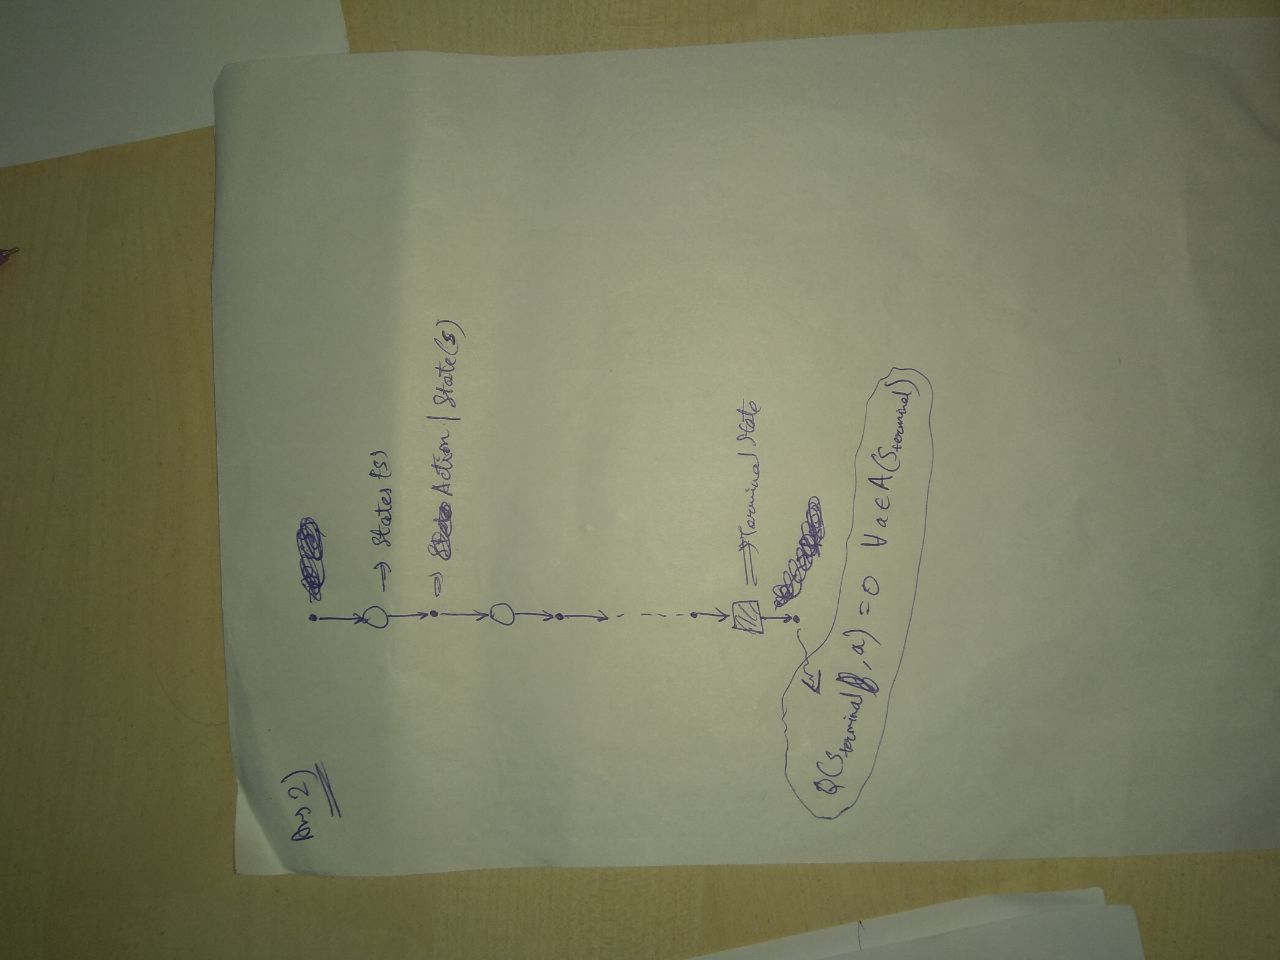 Ans 2)
⇒ States (s)
⇒ Action | State(s)
⇒ Terminal State
Q(S_terminal, a) = 0 ∀ a ∈ A(S_terminal)